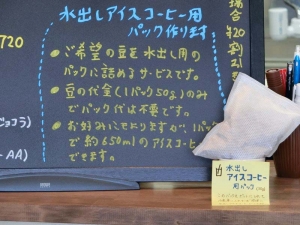 水出しアイスコーヒー用
パック作ります
ご希望の豆を水出し用の
パックに詰めるサービスです。
豆の代金(1パック50g)のみ
でパック代は不要です。
お好みにもよりますが、1パック
で約650mlのアイスコーヒー
できます。
720
場合
¥20割引
AA)
水出し
アイスコーヒー
用パック